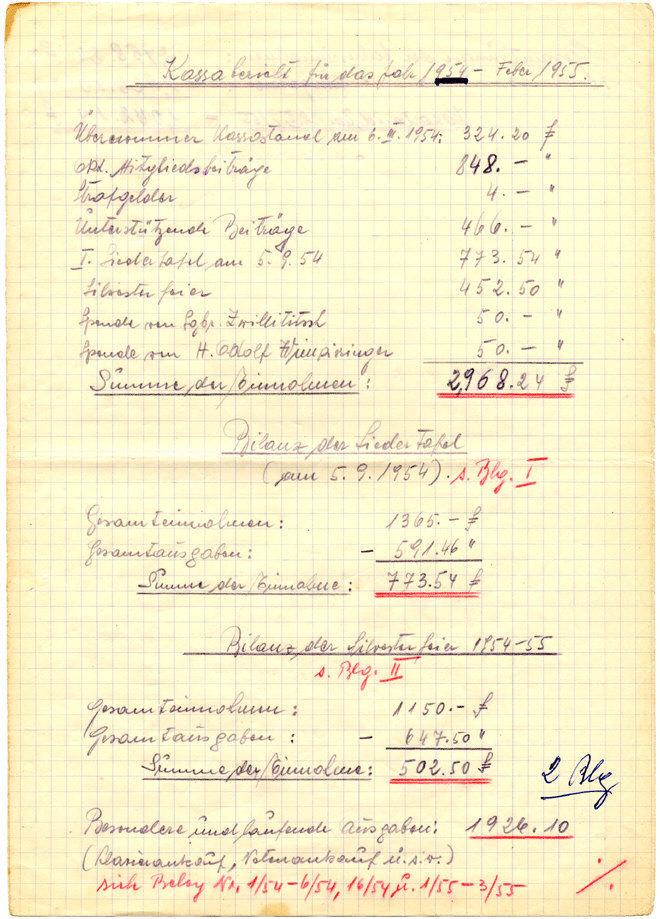 Kassabericht für das Jahr 1954 - Feber 1955.
Übernommener Kassastand am 6. III. 1954: 324.20 ₤
Mitgliedsbeiträge 848.- "
Strafgelder 4.- "
Unterstützende Beiträge 466.- "
I. Liedertafel am 5.9.54 773.54 "
Silvesterfeier 452.50 "
Spende von Sgbr. Zwillitsch 50.- "
Spende von H. Adolf 50.- "
Summe der Einnahmen: 2,968.24 ₤
Bilanz der Liedertafel
(am 5.9.1954). s. Blg. I
Gesamteinnahmen: 1365.- ₤
Gesamtausgaben: - 591.46 "
Summe der Einnahme: 773.54 ₤
Bilanz der Silvesterfeier 1954-55
s. Blg. II
Gesamteinnahmen: 1150.- ₤
Gesamtausgaben: - 647.50 "
Summe der Einnahme: 502.50 ₤
2 Blg
Besondere und laufende Ausgaben: 1926.10
(Klavierankauf, Notenankauf u.s.w.)
sieh Beleg Nr. 1/54-6/54, 16/54 u. 1/55-3/55 ./.